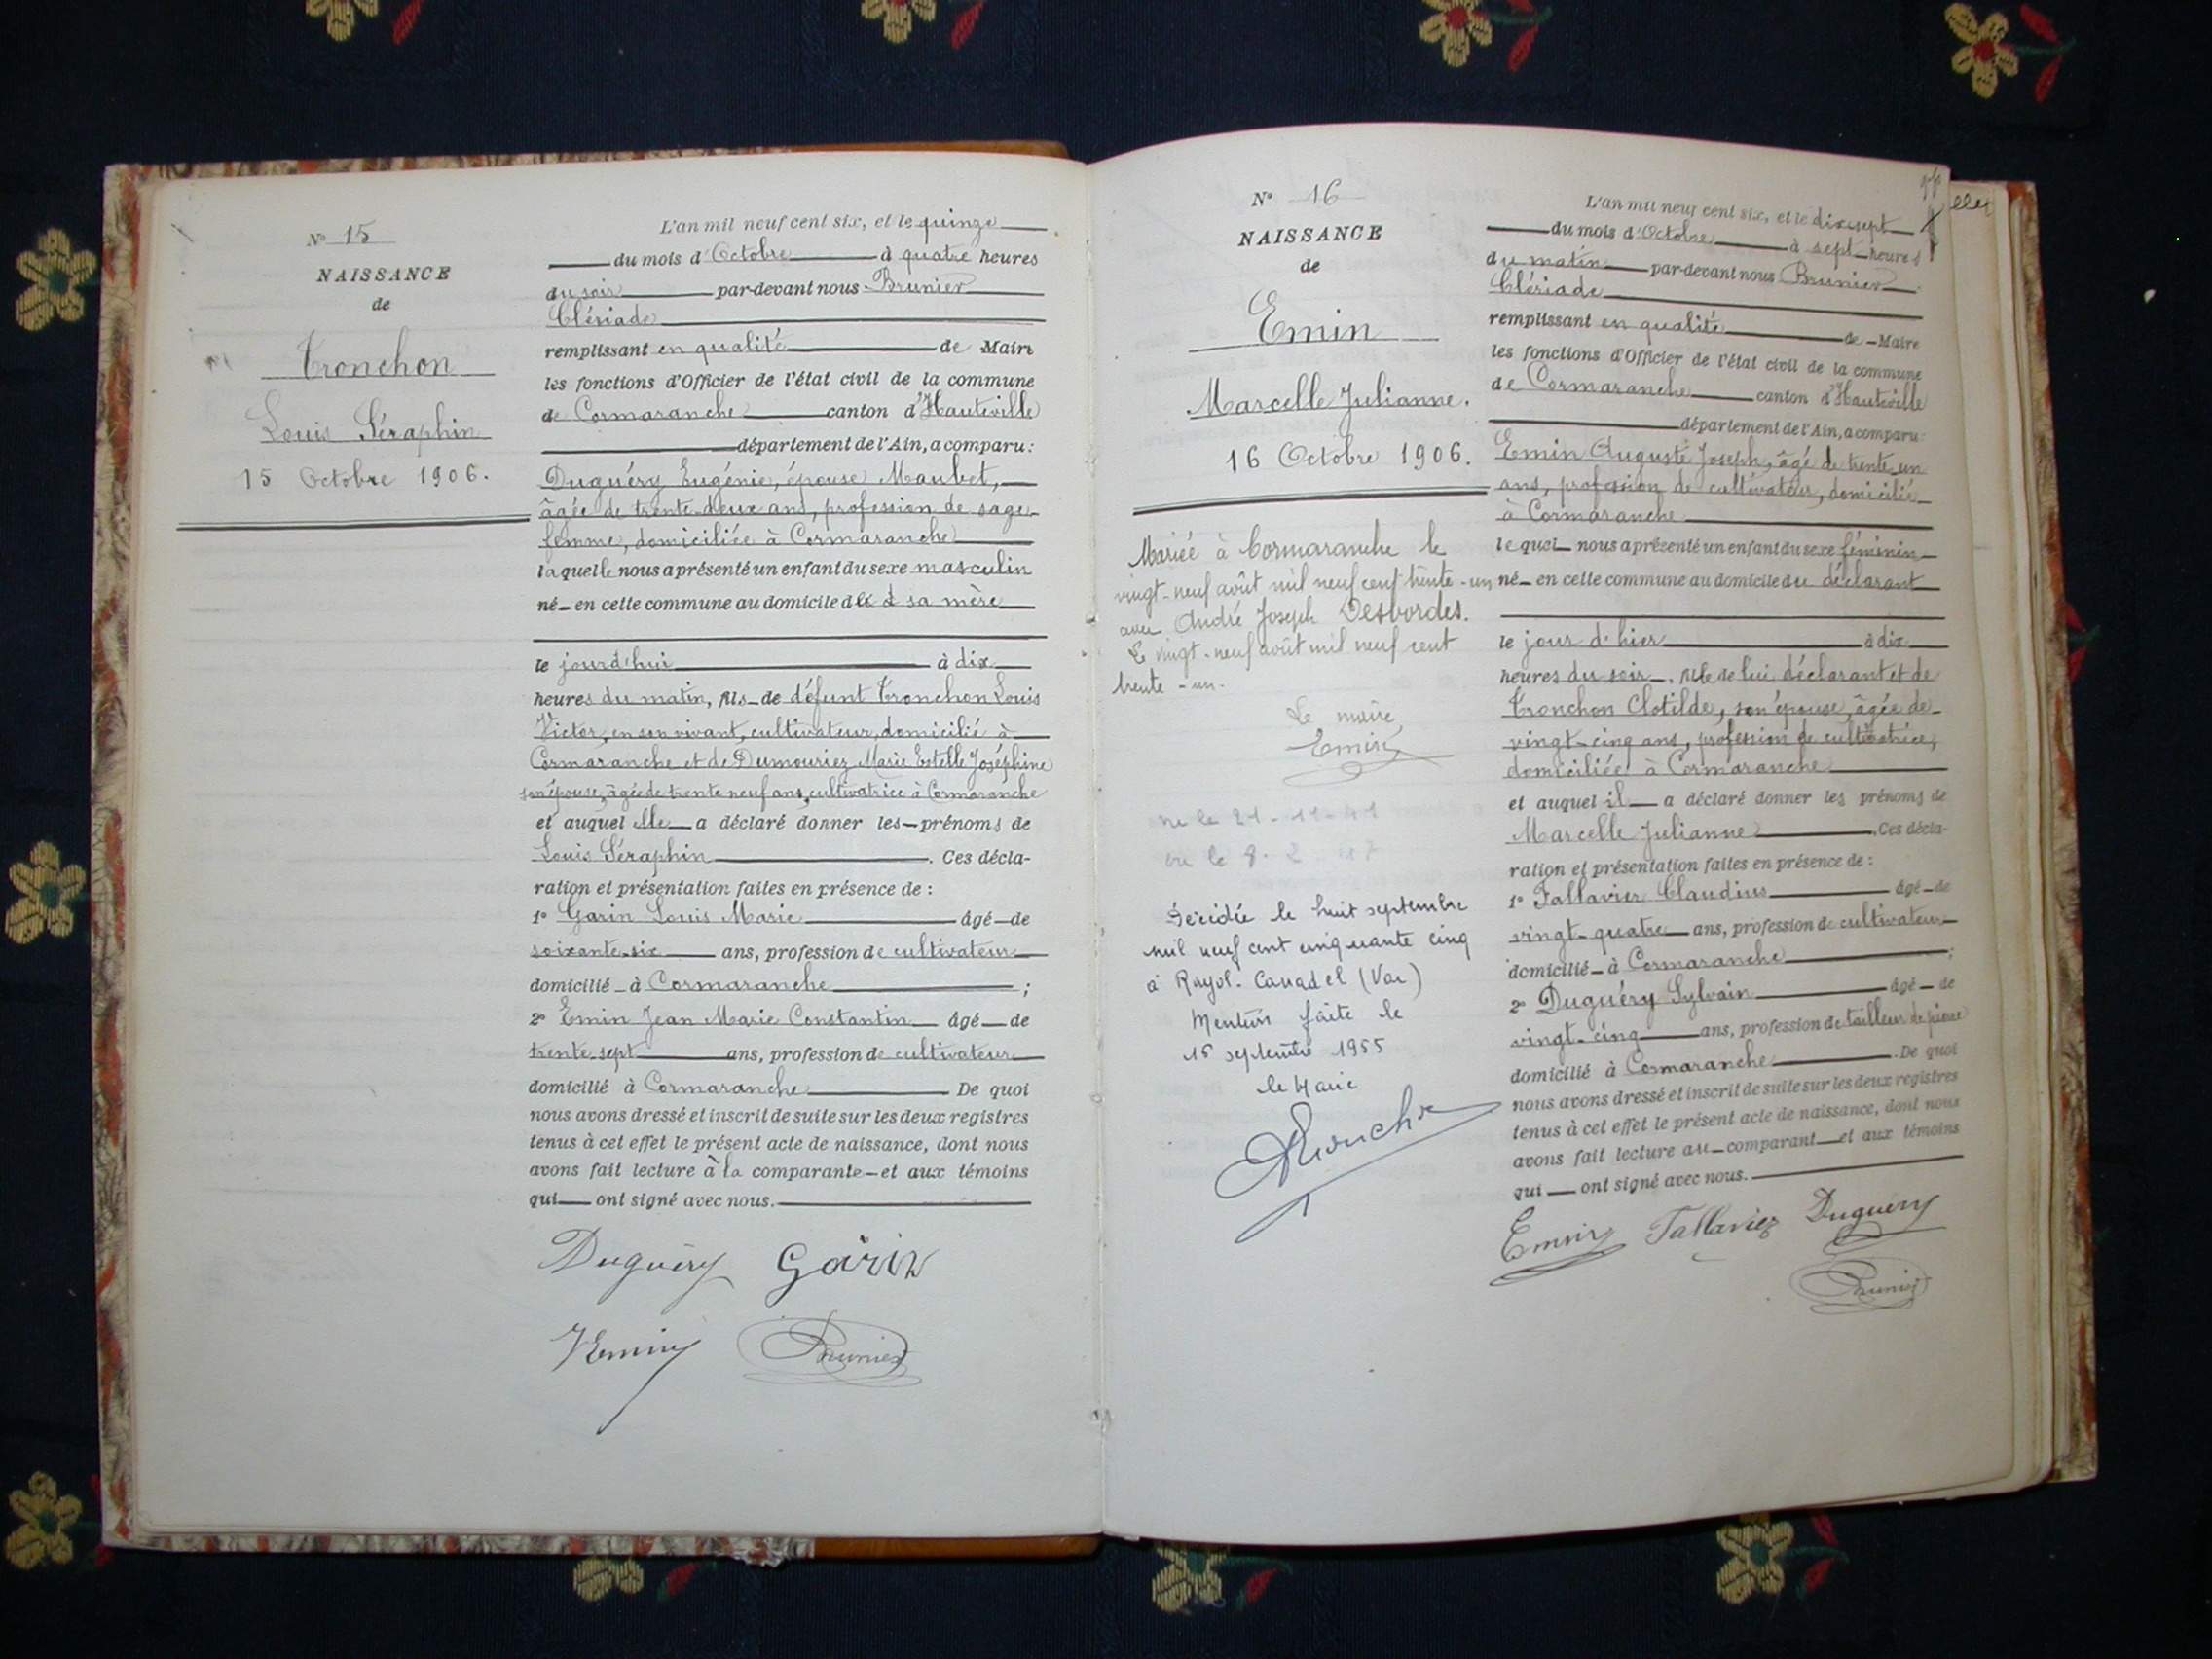 N° 15
NAISSANCE
de
Tronchon
Louis Séraphin
15 Octobre 1906.
L'an mil neuf cent six, et le quinze
du mois d'Octobre à quatre heures
du soir par-devant nous Brunier
Clériade
remplissant en qualité de Maire
les fonctions d'Officier de l'état civil de la commune
de Cormaranche canton d'Hauteville
département de l'Ain, a comparu :
Duguéry Eugénie, épouse Maubet,
âgée de trente-deux ans, profession de sage-
femme, domiciliée à Cormaranche
laquelle nous a présenté un enfant du sexe masculin
né en cette commune au domicile de sa mère
le jourd'hui à dix
heures du matin, fils de défunt Tronchon Louis
Victor, en son vivant, cultivateur, domicilié à
Cormaranche et de Dumouriez Marie Estelle Joséphine
son épouse, âgée de trente neuf ans, cultivatrice à Cormaranche
et auquel elle a déclaré donner les prénoms de
Louis Séraphin. Ces décla-
ration et présentation faites en présence de :
1° Garin Louis Marie âgé de
soixante-six ans, profession de cultivateur
domicilié à Cormaranche ;
2° Emin Jean Marie Constantin âgé de
trente-sept ans, profession de cultivateur
domicilié à Cormaranche De quoi
nous avons dressé et inscrit de suite sur les deux registres
tenus à cet effet le présent acte de naissance, dont nous
avons fait lecture à la comparante et aux témoins
qui ont signé avec nous.
Duguéry Garin
Emin Brunier
N° 16
NAISSANCE
de
Emin
Marcelle Julianne.
16 Octobre 1906.
Mariée à Cormaranche le
vingt-neuf août mil neuf cent trente-un
avec André Joseph Desbordes.
Le vingt-neuf août mil neuf cent
trente-un.
Le maire
Emin
Décédée le huit septembre
mil neuf cent cinquante cinq
à Rayol-Canadel (Var)
Mention faite le
15 septembre 1955
le Maire
L'an mil neuf cent six, et le dix-sept
du mois d'Octobre à sept heures
du matin par-devant nous Brunier
Clériade
remplissant en qualité de Maire
les fonctions d'Officier de l'état civil de la commune
de Cormaranche canton d'Hauteville
département de l'Ain, a comparu :
Emin Auguste Joseph, âgé de trente-un
ans, profession de cultivateur, domicilié
à Cormaranche
lequel nous a présenté un enfant du sexe féminin
né en cette commune au domicile du déclarant
le jour d'hier à dix
heures du soir, fille de lui déclarant et de
Tronchon Clotilde, son épouse, âgée de
vingt-cinq ans, profession de cultivatrice,
domiciliée à Cormaranche
et auquel il a déclaré donner les prénoms de
Marcelle Julianne. Ces décla-
ration et présentation faites en présence de :
1° Tallavier Claudius âgé de
vingt-quatre ans, profession de cultivateur
domicilié à Cormaranche ;
2° Duguéry Sylvain âgé de
vingt-cinq ans, profession de tailleur de pierre
domicilié à Cormaranche. De quoi
nous avons dressé et inscrit de suite sur les deux registres
tenus à cet effet le présent acte de naissance, dont nous
avons fait lecture au comparant et aux témoins
qui ont signé avec nous.
Emin Tallavier Duguery
Brunier